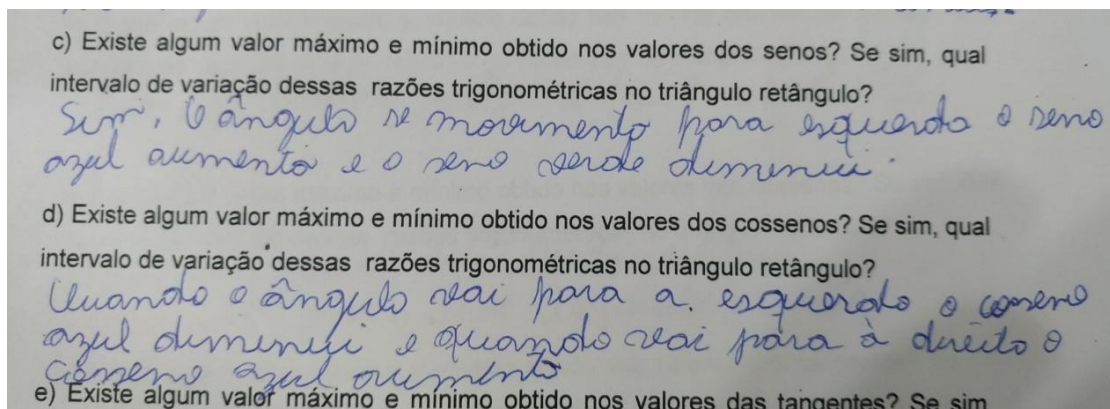 c) Existe algum valor máximo e mínimo obtido nos valores dos senos? Se sim, qual
intervalo de variação dessas razões trigonométricas no triângulo retângulo?
Sim, O ângulo se movimento para esquerda o seno
azul aumenta e o seno verde diminui.
d) Existe algum valor máximo e mínimo obtido nos valores dos cossenos? Se sim, qual
intervalo de variação dessas razões trigonométricas no triângulo retângulo?
Quando o ângulo vai para a esquerda o cosseno
azul diminui e quando vai para à direito o
cosseno azul aumenta
e) Existe algum valor máximo e mínimo obtido nos valores das tangentes? Se sim